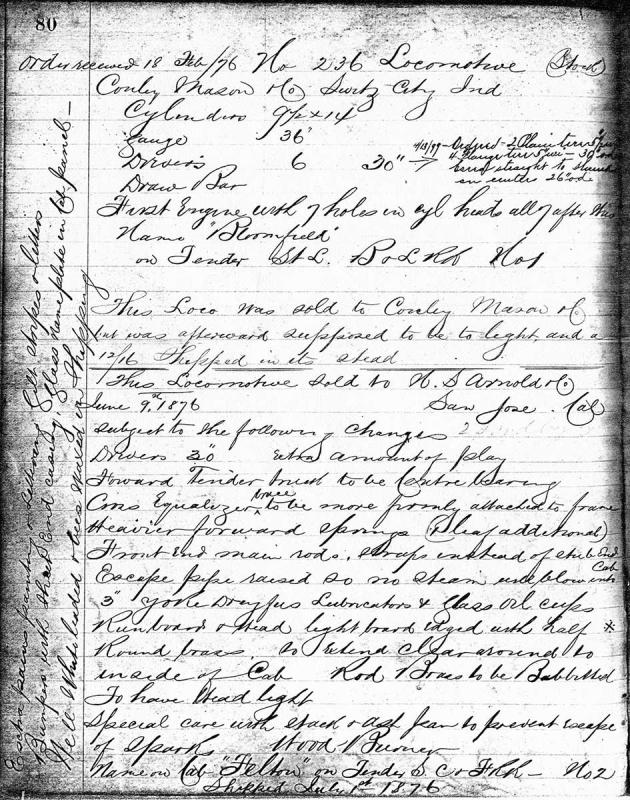 80
Order received 18 Feb/76 No 236 Locomotive (Stock)
Conley Mason & Co Switz City Ind
Cylinders 9½ x 14
Gauge 36"
Drivers 6 30" →
4/13/99 - Ordered - 2 Plain tires
4 Flange tires - 30" o.d.
straight to
in center 26" o.d.
Draw Bar
First Engine with 7 holes in cyl heads all 7 after this
Name "Bloomfield"
on Tender St L. B & L RR No 1
This Loco was sold to Conley Mason & Co
but was afterward supposed to be to light, and a
12/16 Shipped in its stead
This Locomotive sold to N. S Arnold & Co
June 9th, 1876 San Jose. Cal
subject to the following changes
Drivers 30" extra amount of play
Foward Tender truck to be Centre bearing
Cross Equalizer brace to be more firmly attached to frame
Heavier forward springs (1 leaf additional)
Front End main rods, straps instead of stub End
Escape pipe raised so no steam will blow into Cab
3" yoke Dreyfus Lubricators & Glass Oil cups
Run board & Head light board edged with half *
Round brass. to extend clear around to
inside of Cab Rod Brass to be Babbitted
To have Head light
Special care with stack & ash pan to prevent escape
of Sparks Wood Burner
Name on Cab "Felton" on Tender S. C & F RR - No 2
Shipped July 1st 1876
Extra pains painting & lettering Gilt stripes & letters
Bumpers with End casing, glass name plate in Cab panel -
Well White leaded & laces waxed in Shipping